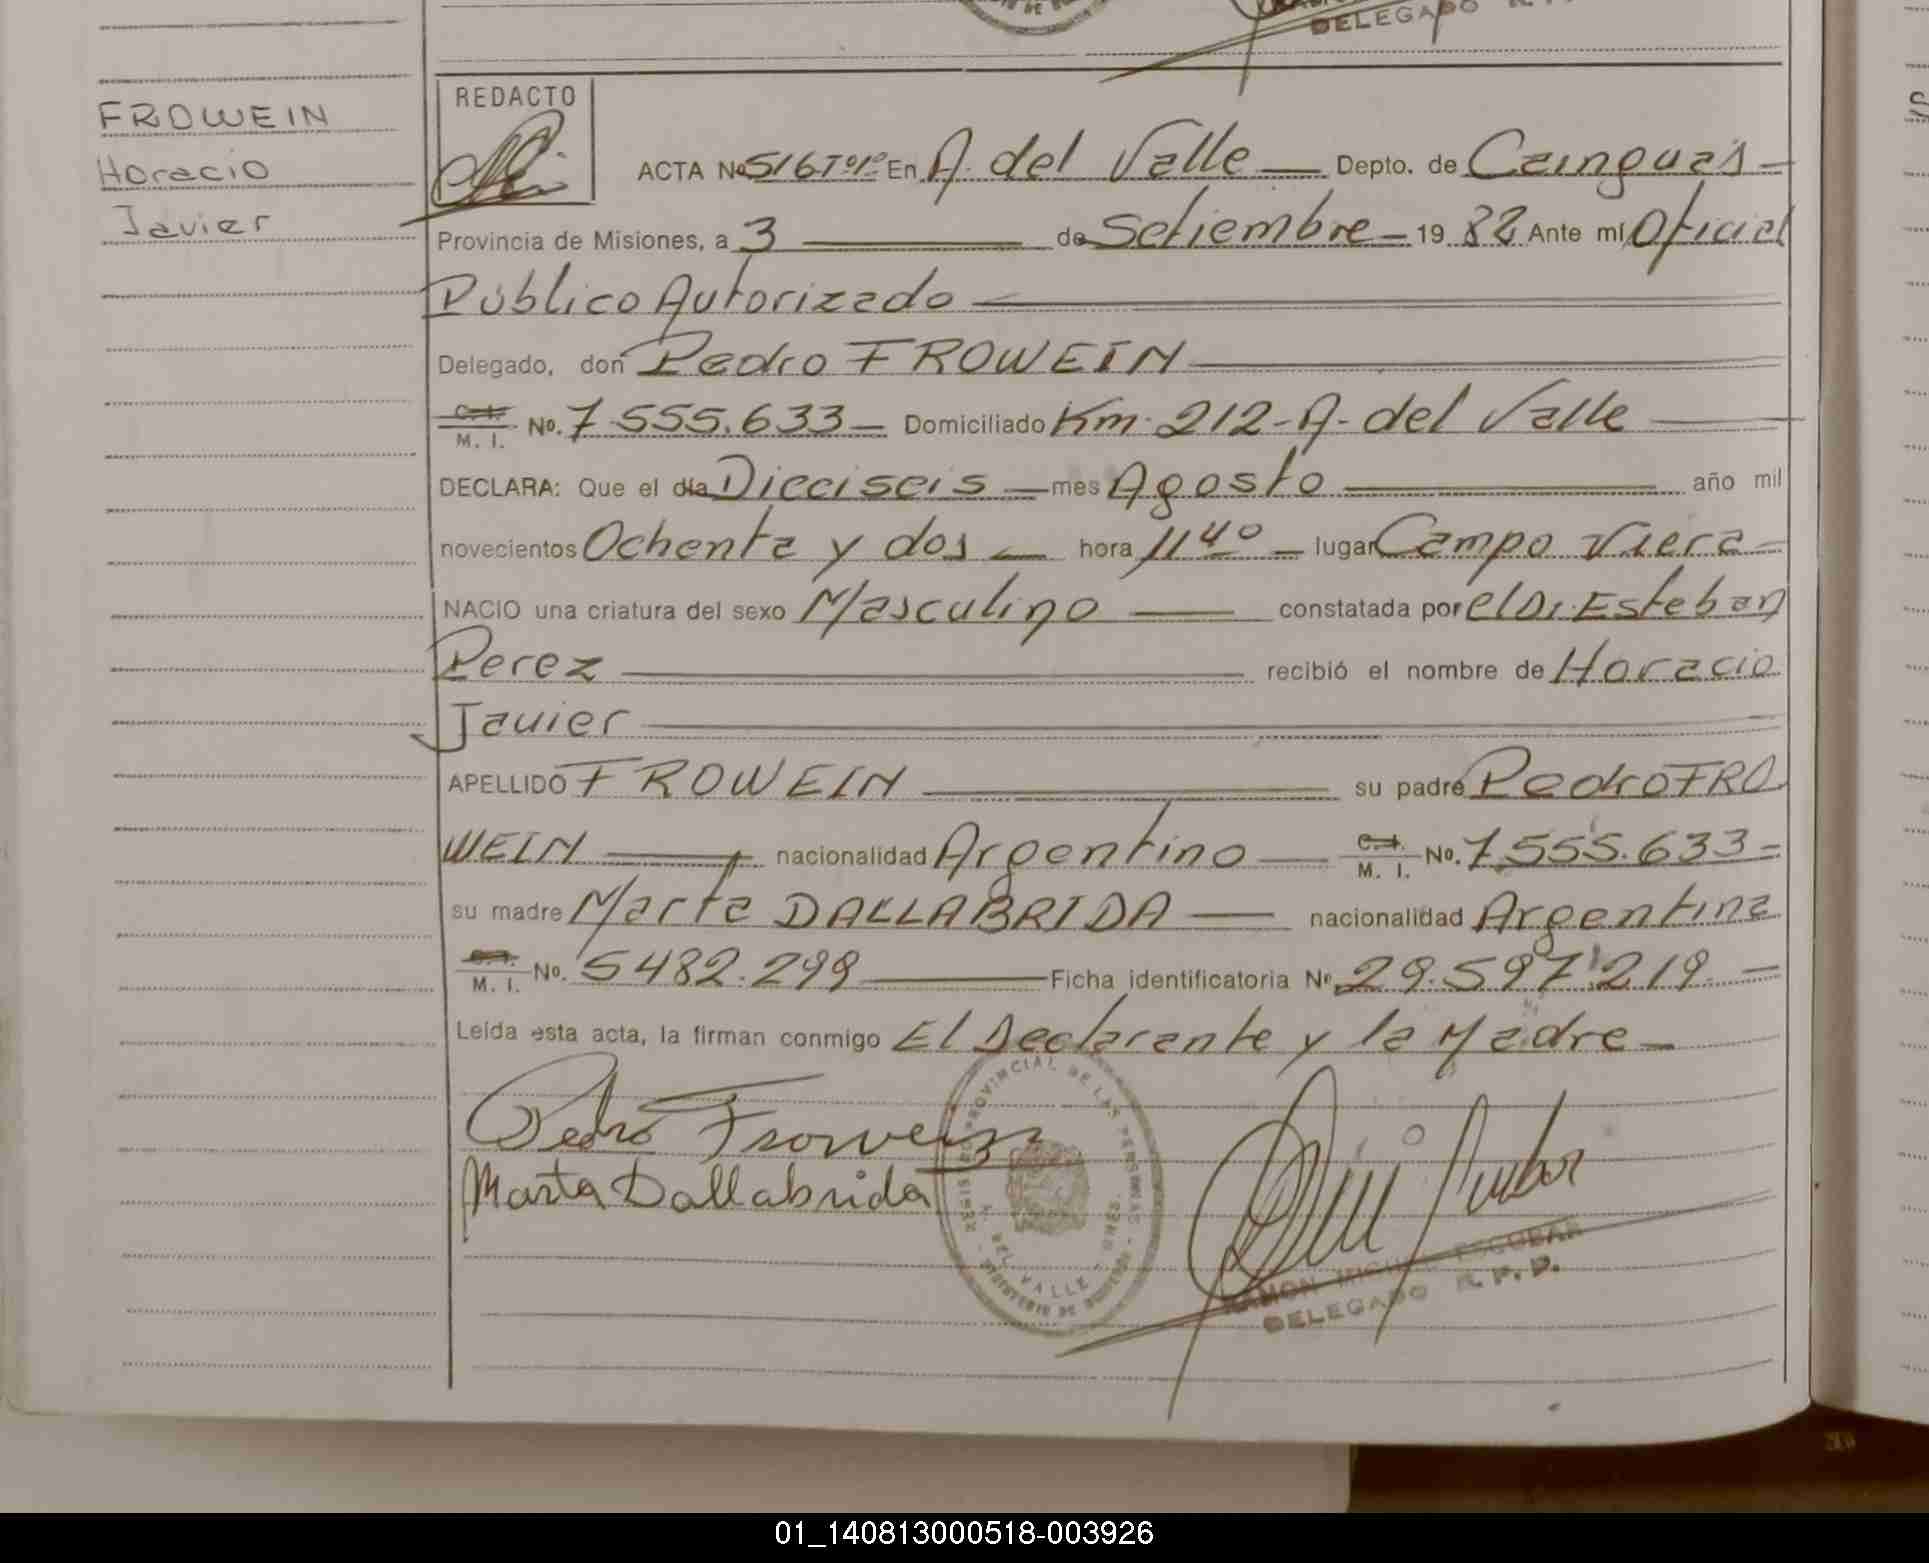 DELEGADO
FROWEIN
Horacio
Javier
REDACTO
ACTA Nº 516 Tº1º En A. del Valle — Depto. de Cainguás —
Provincia de Misiones, a 3 — de Setiembre — 19 82 Ante mí Oficial
Público Autorizado —
Delegado, don Pedro FROWEIN —
C.I. / M. I. No. 7.555.633 — Domiciliado Km. 212 - A. del Valle —
DECLARA: Que el día Dieciseis — mes Agosto — año mil
novecientos Ochenta y dos — hora 11 40 — lugar Campo Viera —
NACIO una criatura del sexo Masculino — constatada por el Dr. Esteban
Perez — recibió el nombre de Horacio
Javier —
APELLIDO FROWEIN — su padre Pedro FRO
WEIN — nacionalidad Argentino — C.I. / M. I. No. 7.555.633 —
su madre Marta DALLABRIDA — nacionalidad Argentina
C.I. / M. I. No. 5482.299 — Ficha identificatoria Nº 29.597.219. —
Leída esta acta, la firman conmigo El Declarante y la Madre —
Pedro Frowein
Marta Dallabrida
PROVINCIAL DE LAS PERSONAS
DEL VALLE
RAMON MIGUEL ESCOBAR
DELEGADO R. P. P.
01_140813000518-003926